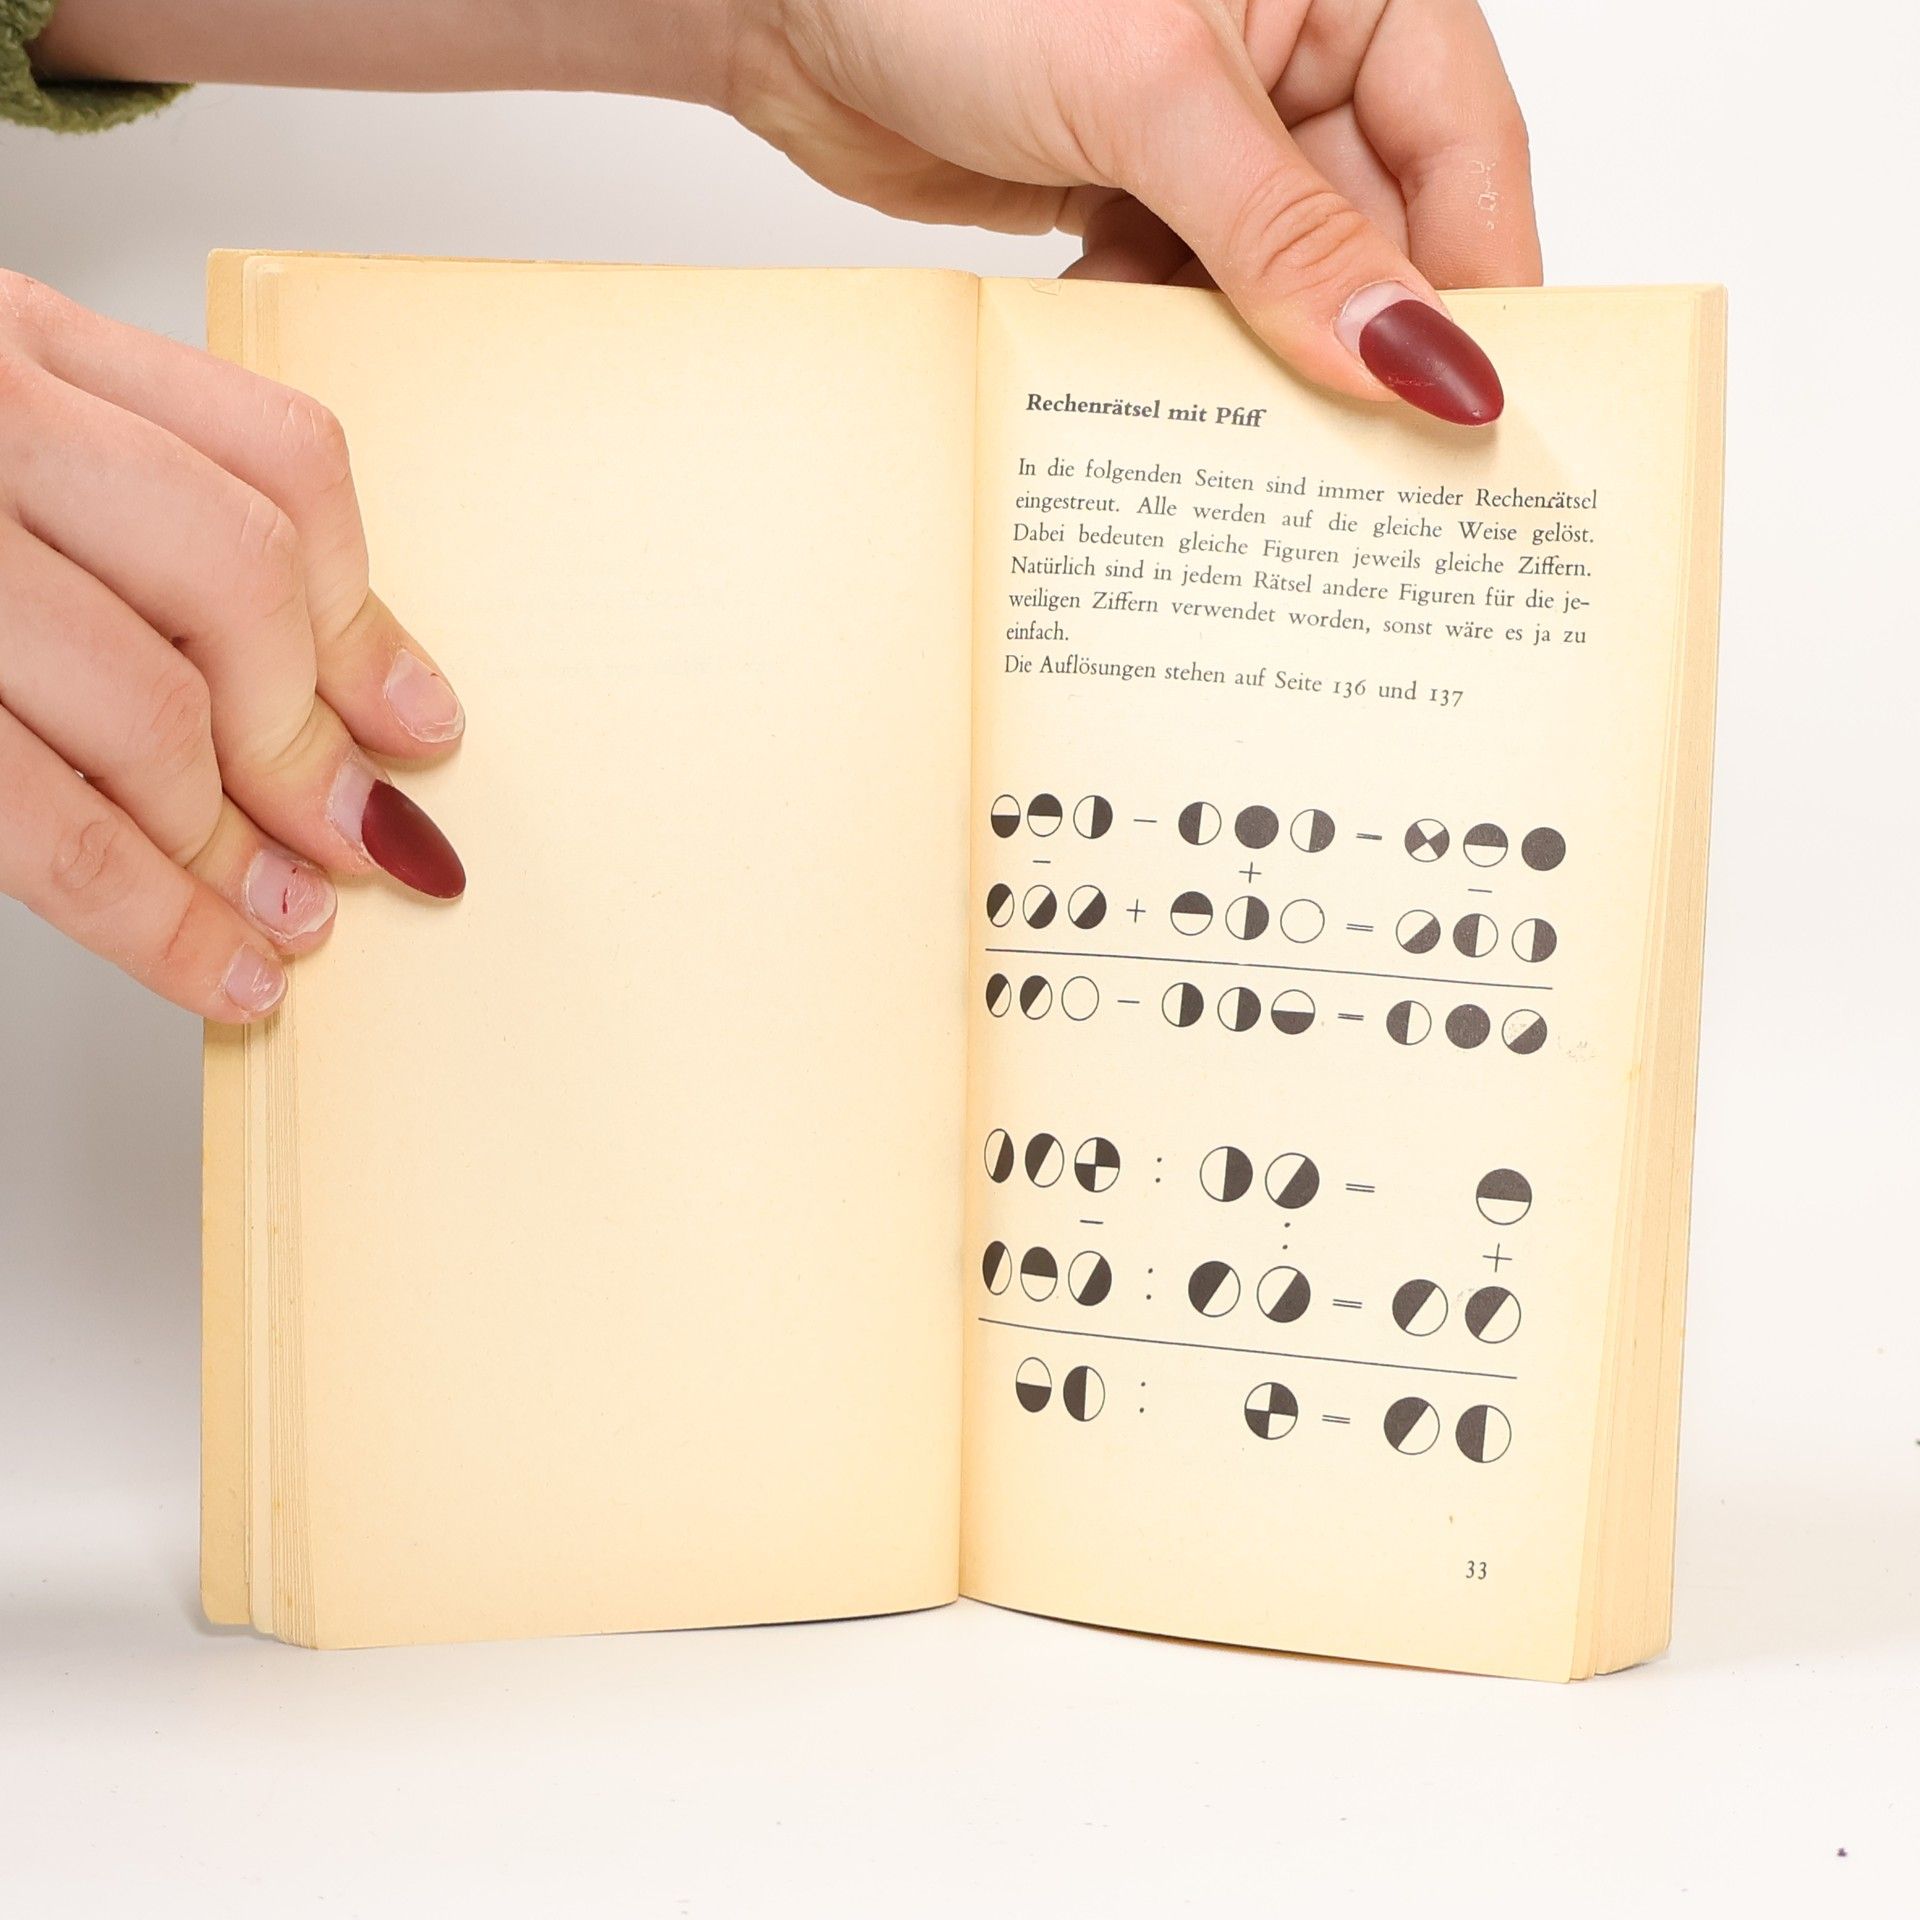 Rechenrätsel mit Pfiff
In die folgenden Seiten sind immer wieder Rechenrätsel
eingestreut. Alle werden auf die gleiche Weise gelöst.
Dabei bedeuten gleiche Figuren jeweils gleiche Ziffern.
Natürlich sind in jedem Rätsel andere Figuren für die je-
weiligen Ziffern verwendet worden, sonst wäre es ja zu
einfach.
Die Auflösungen stehen auf Seite 136 und 137
33